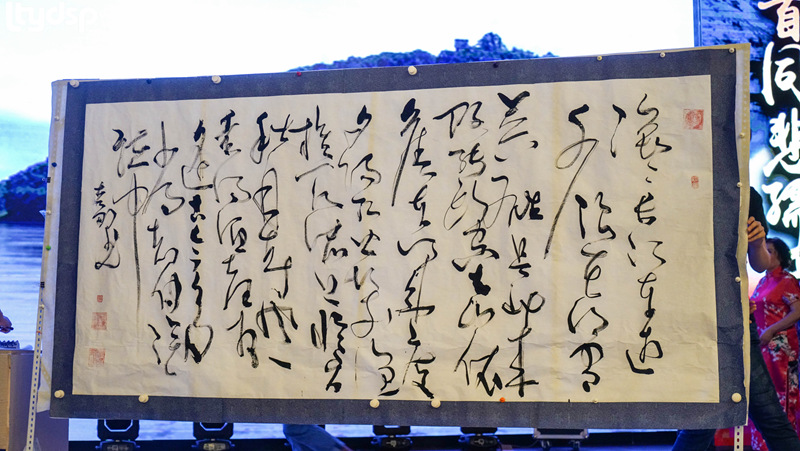 滚滚长江东逝
水浪花淘尽
英雄是非成
败转头空青山依
旧在几度
夕阳红白发渔
樵江渚上惯看
秋月春风一
壶浊酒喜相
逢古今多
少事都付笑
谈中
同悲
ltydsp